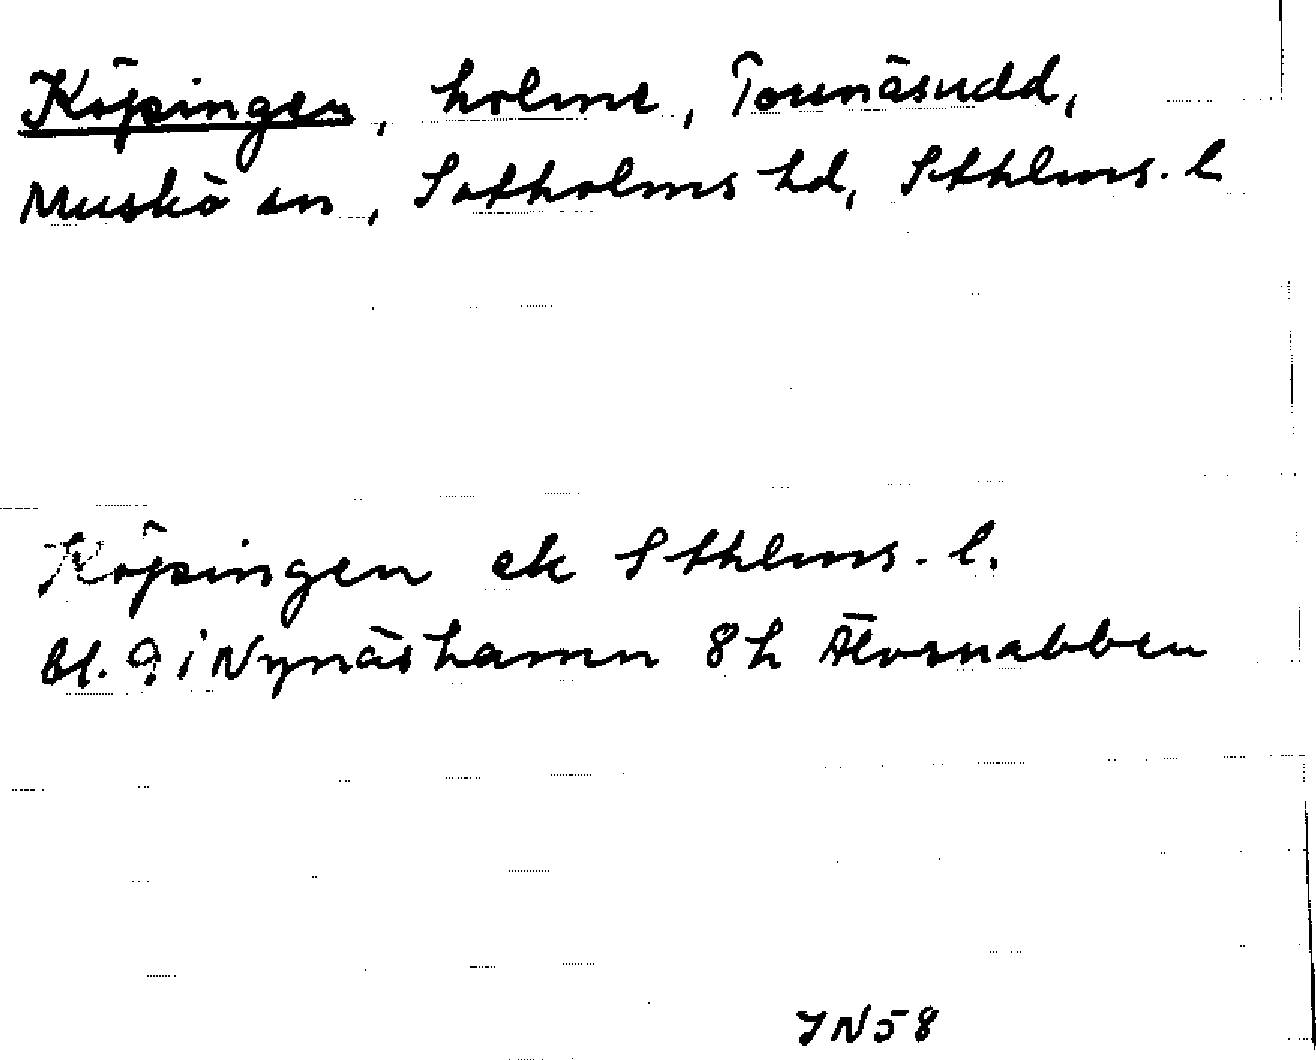 Köpingen, holme, Tornäsudd,
Muskö sn, Sotholms hd, Sthlms. l
Köpingen ek Sthlms. l.
Bl. 9 i Nynäshamn 8h Älvsnabben
JN58